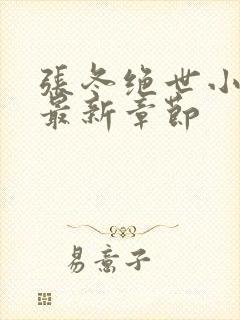 張冬绝世小
最新章節
易意子